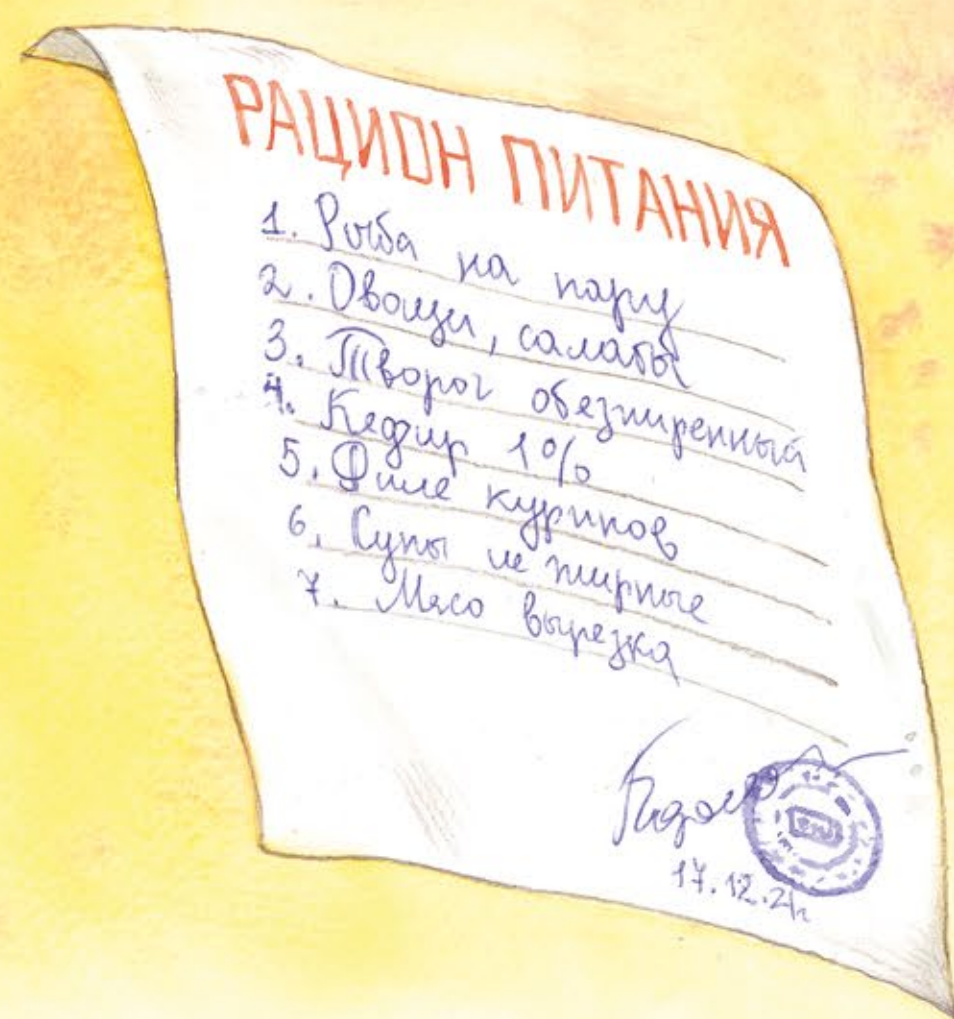 РАЦИОН ПИТАНИЯ
1. Рыба на пару
2. Овощи, салаты
3. Творог обезжиренный
4. Кефир 1%
5. Филе куринов
6. Супы не жирные
7. Мясо вырезка
17.12.21г